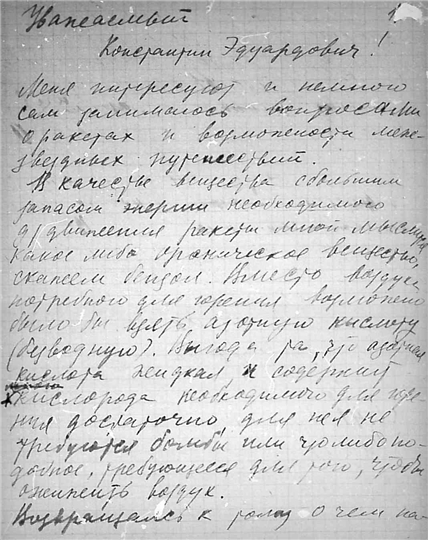 Уважаемый
Константин Эдуардович!
Меня интересуют и немного
сам занимаюсь вопросами
о ракетах и возможности меж-
звездных путешествий.
В качестве вещества с большим
запасом энергии необходимого
движения ракеты мыслится
какое либо органическое вещество,
скажем бензол. Вместо воздуха
потребного для горения возможно
было бы взять азотную кислоту
(безводную). Выгода та, что азотная
кислота жидкая и содержит
кислорода необходимого для
достаточно, для нея не
требуются бомбы или что либо по-
добное, требующееся для того, чтобы
ожижить воздух.
Возвращаясь к тому о чем на-